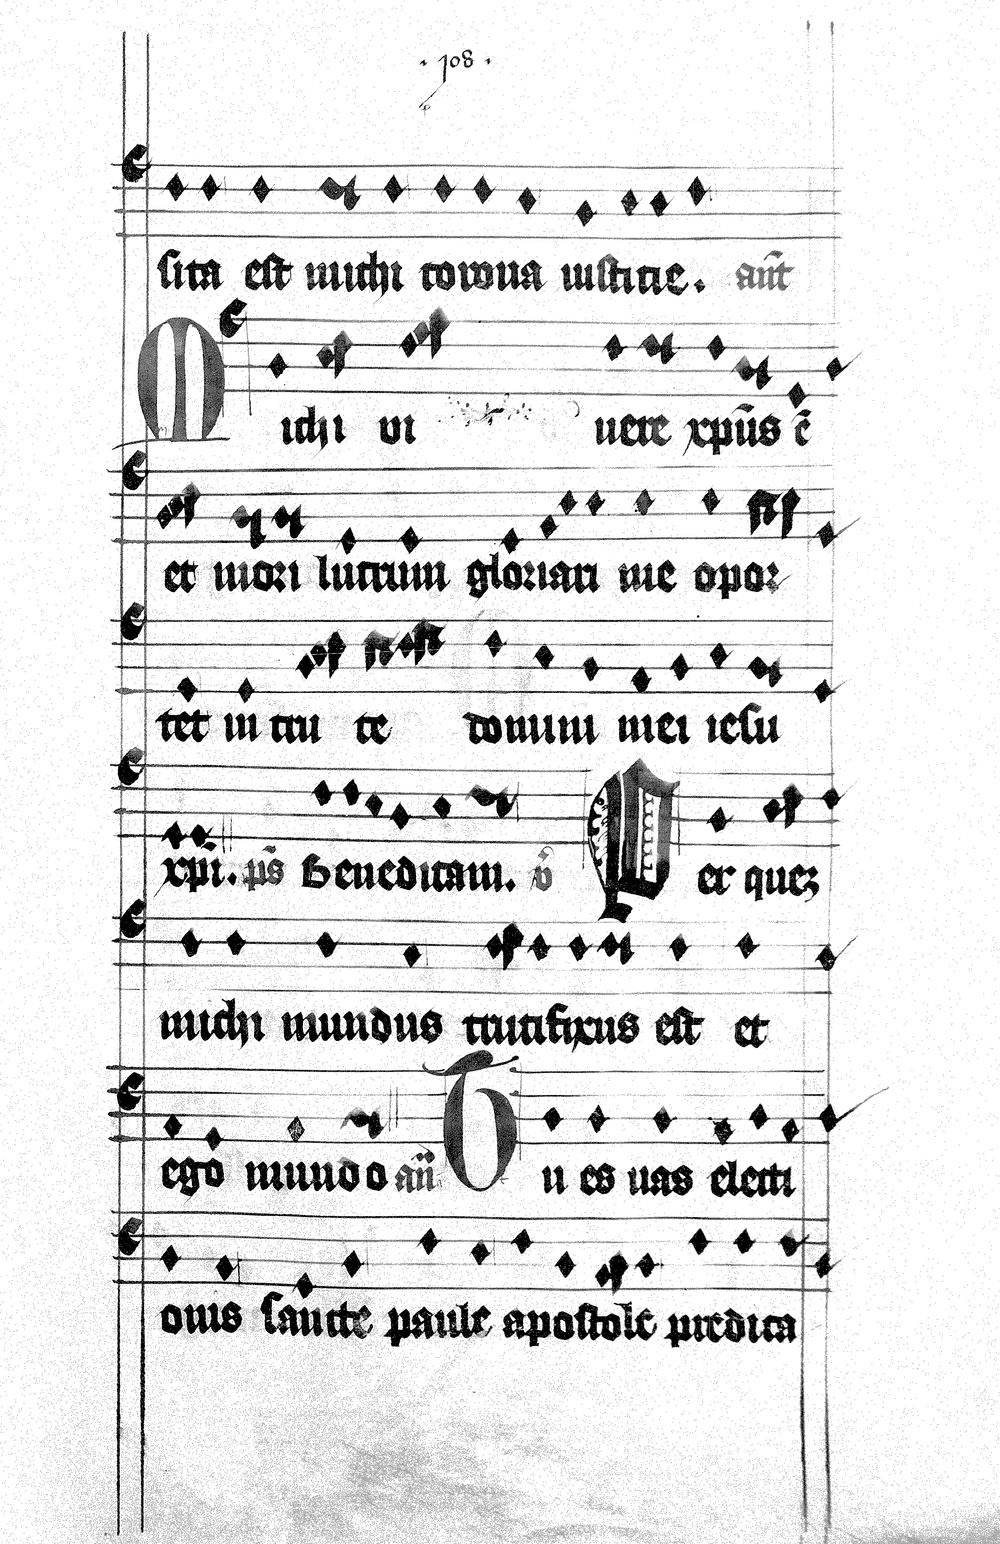 · 108 ·
sita est michi corona iusticie. añt
Michi vi uere xpūs ē
et mori lucrum gloriari me opor
tet in cru ce domini mei iesu
xpī. p̄s Benedicam. v̄ Per quez
michi mundus crucifixus est et
ego mundo añ Tu es uas electi
onis sancte paule apostole predica